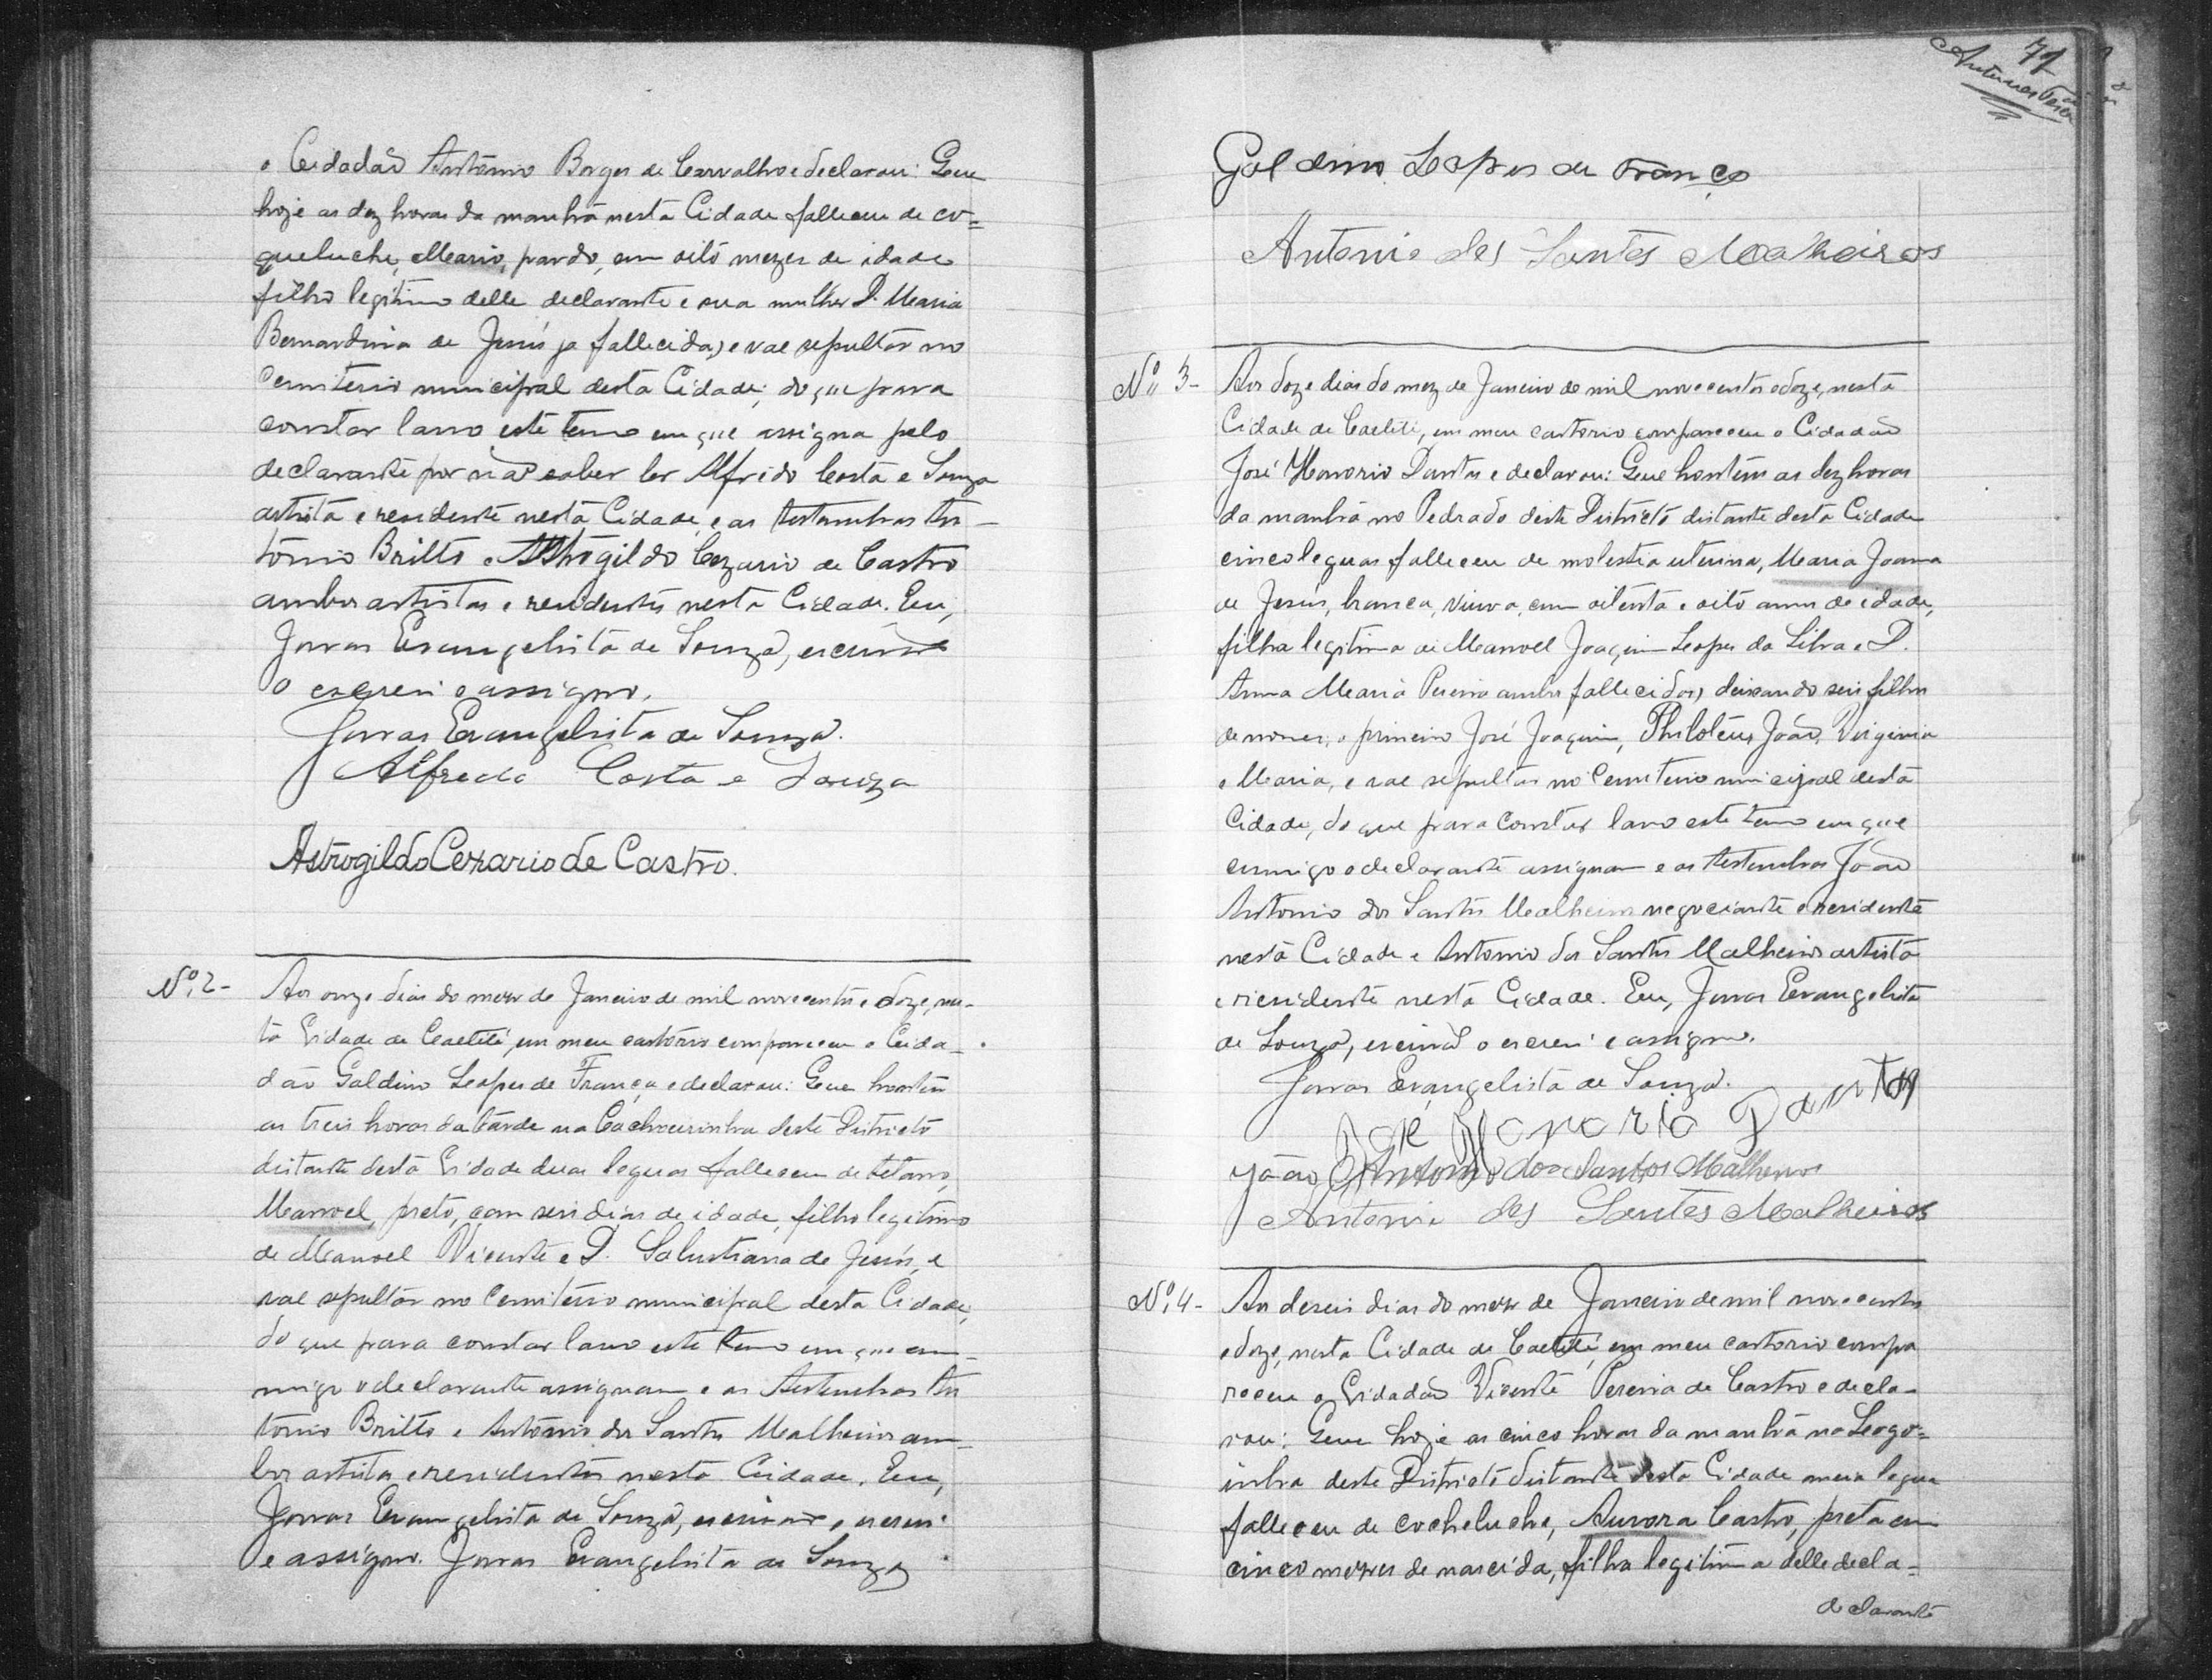 o Cidadão Antônio Borges de Carvalho e declarou: Que
hoje as dez horas da manhã nesta Cidade falleceu de co=
queluche, Mario, pardo, com oito mezes de idade
filho legitimo delle declarante e sua mulher D. Maria
Bernardina de Jesús ja fallecida, e vae sepultar no
Cemiterio municipal desta Cidade; do que para
constar lavro este termo em que assigna pelo
declarante por não saber ler Alfredo Costa e Souza
artista e residente nesta Cidade, e as testemunhas An-
tônio Britto e Astrogildo Cezario de Castro
ambos artistas e residentes nesta Cidade. Eu,
Jovas Evangelista de Souza, escrivão
o escrevi e assigno.
Jovas Evangelista de Souza.
Alfredo Costa e Souza
Astrogildo Cezario de Castro.
Nº 2- Aos onze dias do mez de Janeiro de mil novecentos e doze, nes-
ta Cidade de Caetité, em meu cartorio compareceu o Cida-
dão Galdino Lopes de França e declarou: Que hontem
as treis horas da tarde na Cachoeirinha deste Districto
distante desta Cidade duas leguas falleceu de tetano,
Manoel, preto, com seis dias de idade, filho legitimo
de Manoel Vicente e D. Salustiana de Jesús, e
vae sepultar no Cemiterio municipal desta Cidade,
do que para constar lavro este termo em que com-
migo o declarante assignam e as testemunhas An
tonio Britto e Antônio dos Santos Malheiros am-
bos artistas e residentes nesta Cidade. Eu,
Jovas Evangelista de Souza, escrivão o escrevi
e assigno. Jovas Evangelista de Souza
71
Galdino Lopes de França
Antonio dos Santos Malheiros
Nº 3- Aos doze dias do mez de Janeiro de mil novecentos e doze, nesta
Cidade de Caetité, em meu cartorio compareceu o Cidadão
José Honorio Dantas e declarou: Que hontem as dez horas
da manhã no Pedrado deste Districto distante desta Cidade
cinco leguas falleceu de molestia uterina, Maria Joanna
de Jesus, branca, viuva, com oitenta e oito annos de idade,
filha legitima de Manoel Joaquim Lopes da Silva e D.
Anna Maria Pereira ambos fallecidos, deixando seis filhos
de nomes, o primeiro José Joaquim, Philotéus, João, Virginia
e Maria, e vae sepultar no Cemiterio municipal desta
Cidade, do que para constar lavro este termo em que
commigo o declarante assignam e as testemunhas João
Antonio dos Santos Malheiros negociante e residente
nesta Cidade e Antonio dos Santos Malheiros artista
e residente nesta Cidade. Eu, Jovas Evangelista
de Souza, escrivão o escrevi e assigno.
Jovas Evangelista de Souza.
José Honorio Dantas
João Antonio dos Santos Malheiros
Antonio dos Santos Malheiros
Nº 4- Aos deseis dias do mez de Janeiro de mil novecentos
e doze, nesta Cidade de Caetité, em meu cartorio compa
receu o Cidadão Vicente Pereira de Castro e decla-
rou: Que hoje as cinco horas da manhã na Lagô=
inha deste Districto distante desta Cidade meia legua
falleceu de cocheluche, Aurora Castro, preta com
cinco mezes de nascida, filha legitima delle decla=
declarante